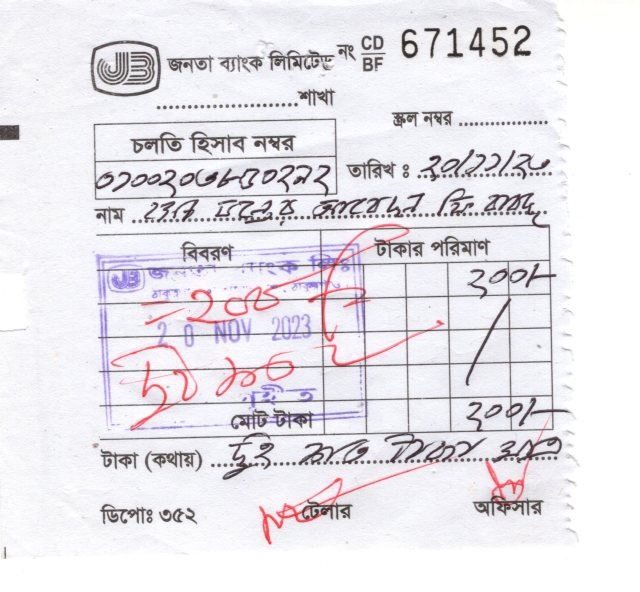 JB জনতা ব্যাংক লিমিটেড নং CD BF 671452
....................শাখা
স্ক্রল নম্বর ....................
চলতি হিসাব নম্বর
তারিখ : ২০/১১/২৩
নাম
বিবরণ টাকার পরিমাণ
২০০/-
২০০
20 NOV 2023
দুই শত
মোট টাকা ২০০/-
টাকা (কথায়) দুই শত টাকা মাত্র
ডিপোঃ ৩৫২ টেলার অফিসার